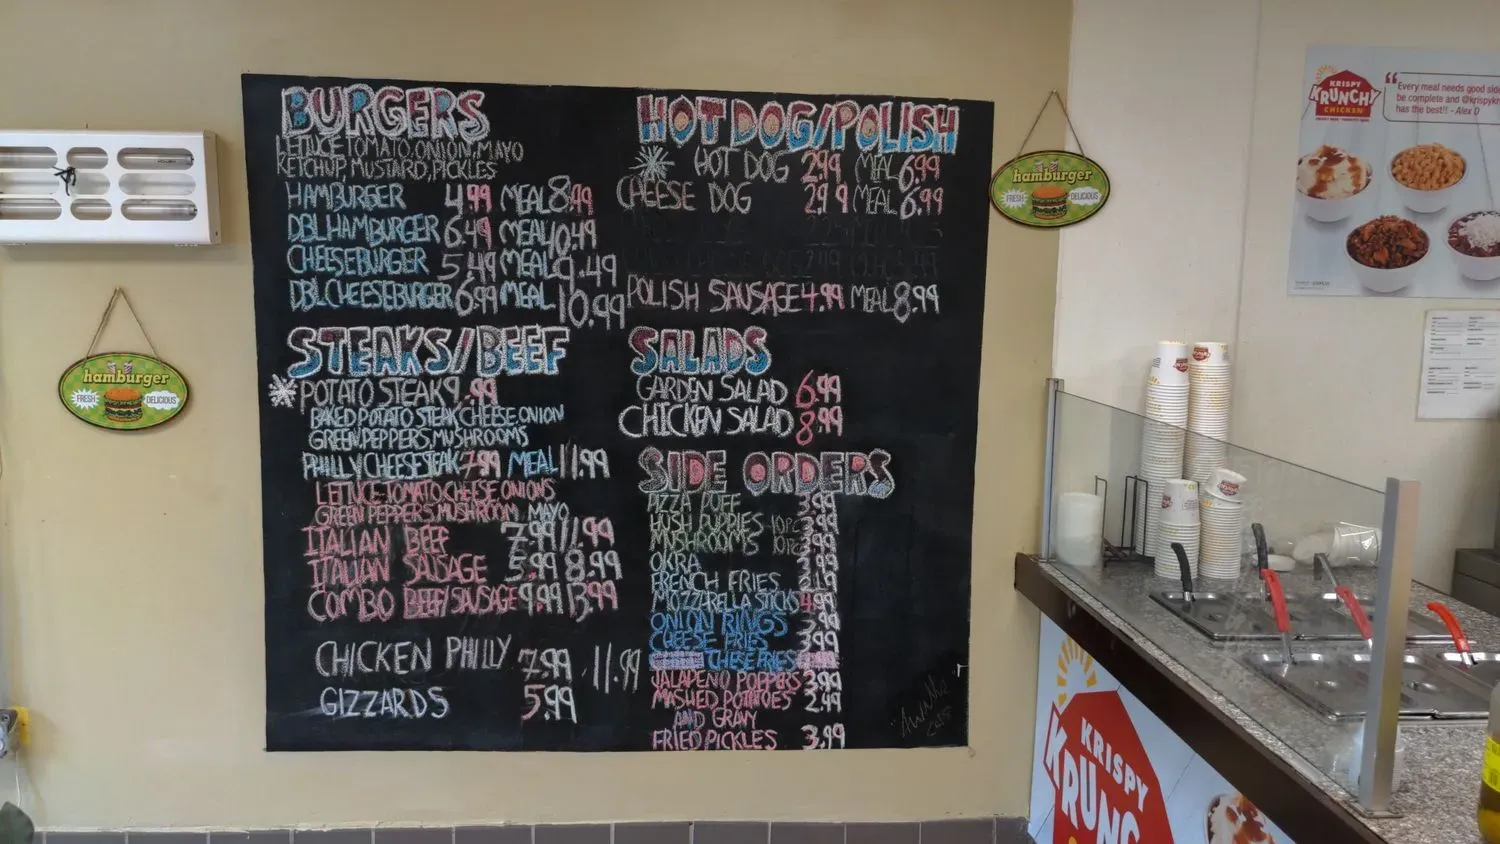 BURGERS
LETTUCE, TOMATO, ONION, MAYO
KETCHUP, MUSTARD, PICKLES
HAMBURGER 4.99 MEAL 8.99
DBL HAMBURGER 6.49 MEAL 10.49
CHEESEBURGER 5.49 MEAL 9.49
DBL CHEESEBURGER 6.99 MEAL 10.99
STEAKS/BEEF
POTATO STEAK 9.99
BAKED POTATO STEAK CHEESE, ONION
GREEN PEPPERS, MUSHROOMS
PHILLY CHEESE STEAK 7.99 MEAL 11.99
LETTUCE, TOMATO, CHEESE, ONIONS
GREEN PEPPERS, MUSHROOM, MAYO
ITALIAN BEEF 7.99 11.99
ITALIAN SAUSAGE 5.99 8.99
COMBO BEEF/SAUSAGE 9.99 13.99
CHICKEN PHILLY 7.99 11.99
GIZZARDS 5.99
HOT DOG/POLISH
HOT DOG 2.99 MEAL 6.99
CHEESE DOG 2.99 MEAL 6.99
POLISH SAUSAGE 4.99 MEAL 8.99
SALADS
GARDEN SALAD 6.99
CHICKEN SALAD 8.99
SIDE ORDERS
PIZZA PUFF 3.99
HUSH PUPPIES 10PC 3.99
MUSHROOMS 10PC 3.99
OKRA 3.99
FRENCH FRIES
MOZZARELLA STICKS 4.99
ONION RINGS 3.99
CHEESE FRIES 3.99
CHEESE FRIES
JALAPENO POPPERS 3.99
MASHED POTATOES 2.49
AND GRAVY
FRIED PICKLES 3.99
hamburger
FRESH DELICIOUS
hamburger
FRESH DELICIOUS
KRISPY
KRUNCHY
CHICKEN
"Every meal needs good side
be complete and @krispykr
has the best!! - Alex D
KRISPY
KRUNC